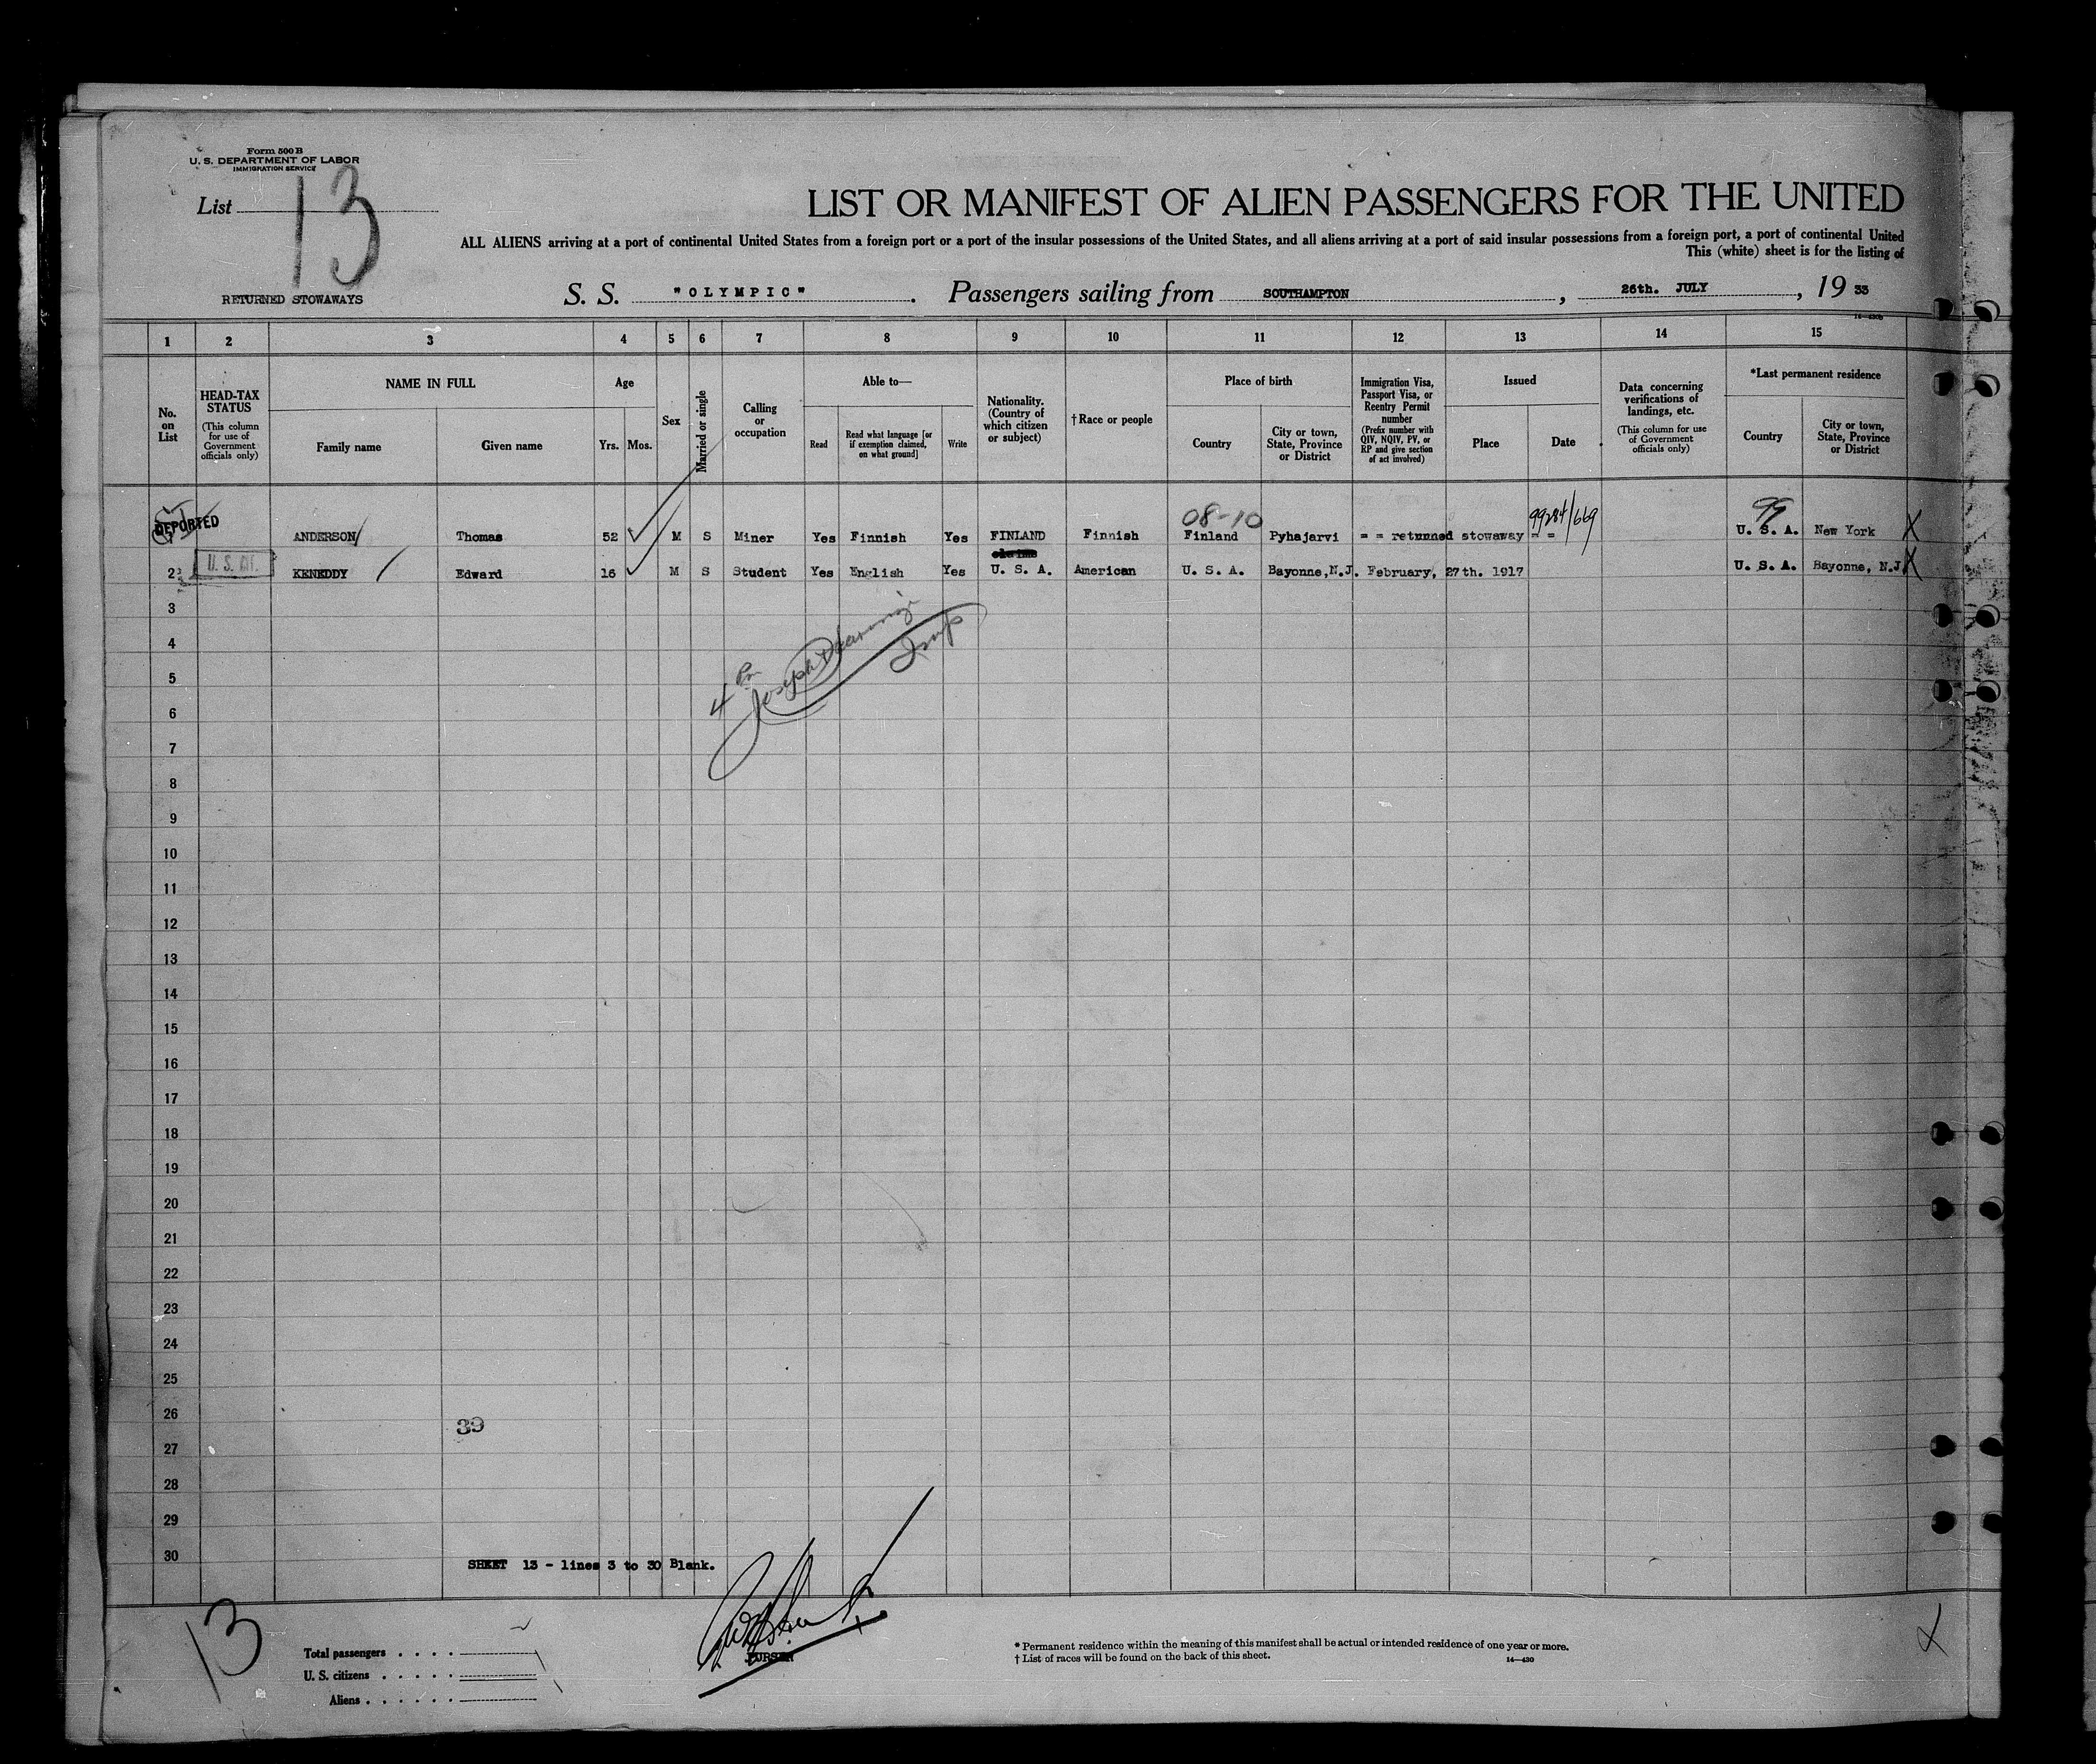 Form 500 B
U. S. DEPARTMENT OF LABOR
IMMIGRATION SERVICE
List 13
LIST OR MANIFEST OF ALIEN PASSENGERS FOR THE UNITED
ALL ALIENS arriving at a port of continental United States from a foreign port or a port of the insular possessions of the United States, and all aliens arriving at a port of said insular possessions from a foreign port, a port of continental United
This (white) sheet is for the listing of
RETURNED STOWAWAYS
S. S. "OLYMPIC". Passengers sailing from SOUTHAMPTON, 26th. JULY, 19 33
1 2 3 4 5 6 7 8 9 10 11 12 13 14 15
No. on List
HEAD-TAX STATUS (This column for use of Government officials only)
NAME IN FULL
Family name
Given name
Age
Yrs. Mos.
Sex
Married or single
Calling or occupation
Able to—
Read
Read what language [or if exemption claimed, on what ground]
Write
Nationality. (Country of which citizen or subject)
†Race or people
Place of birth
Country
City or town, State, Province or District
Immigration Visa, Passport Visa, or Reentry Permit number (Prefix number with QIV, NQIV, PV, or RP and give section of act involved)
Issued
Place
Date
Data concerning verifications of landings, etc. (This column for use of Government officials only)
*Last permanent residence
Country
City or town, State, Province or District
08-10 99284/669 99
DEPORTED ANDERSON Thomas 52 M S Miner Yes Finnish Yes FINLAND Finnish Finland Pyhajarvi = = retunned stowaway = = U. S. A. New York X
2 U. S. CIT. KENEDDY Edward 16 M S Student Yes English Yes U. S. A. American U. S. A. Bayonne,N.J. February, 27th. 1917 U. S. A. Bayonne, N.J X
3
4
5
6
7
8
9
10
11
12
13
14
15
16
17
18
19
20
21
22
23
24
25
26
39
27
28
29
30
SHEET 13 - lines 3 to 30 Blank.
13
PURSER
Total passengers
U. S. citizens
Aliens
* Permanent residence within the meaning of this manifest shall be actual or intended residence of one year or more.
† List of races will be found on the back of this sheet.
14—430
X